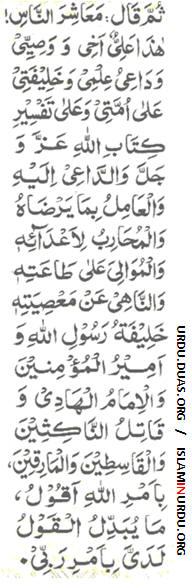 ثُمَّ قَالَ: مَعَاشِرَ النَّاسِ!
هٰذَا عَلِيٌّ اَخِيْ وَ وَصِيِّيْ
وَدَاعِيْ عِلْمِيْ وَخَلِيْفَتِيْ
عَلٰى اُمَّتِيْ وَعَلٰى تَفْسِيْرِ
كِتَابِ اللهِ عَزَّ وَ
جَلَّ وَالدَّاعِيْ اِلَيْهِ
وَالْعَامِلُ بِمَا يَرْضَاهُ
وَالْمُحَارِبُ لِاَعْدَآئِهٖ
وَالْمُوَالِيْ عَلٰى طَاعَتِهٖ
وَالنَّاهِيْ عَنْ مَعْصِيَتِهٖ
خَلِيْفَةُ رَسُوْلِ اللهِ وَ
اَمِيْرُ الْمُؤْمِنِيْنَ
وَالْاِمَامُ الْهَادِيْ وَ
قَاتِلُ النَّاكِثِيْنَ
وَالْقَاسِطِيْنَ وَالْمَارِقِيْنَ،
بِاَمْرِ اللهِ اَقُوْلُ،
مَا يُبَدَّلُ الْقَوْلُ
لَدَيَّ بِاَمْرِ رَبِّيْ۰
URDU.DUAS.ORG / ISLAMINURDU.ORG